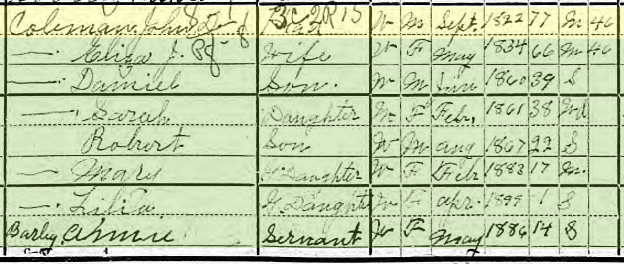 Coleman, John W M Sept. 1822 77 M 46
— Eliza J. Wife W F May 1834 66 M 46
— Daniel Son. W M Jan 1860 39 S
—. Sarah Daughter W F Feb, 1861 38 Wd
Robert Son W M aug 1867 22 S
— Mary G Daughter W F Feb 1883 17 M.
—. G Daughter W F apr. 1899 1 S
Barley, Annie Servant W F May 1886 14 S